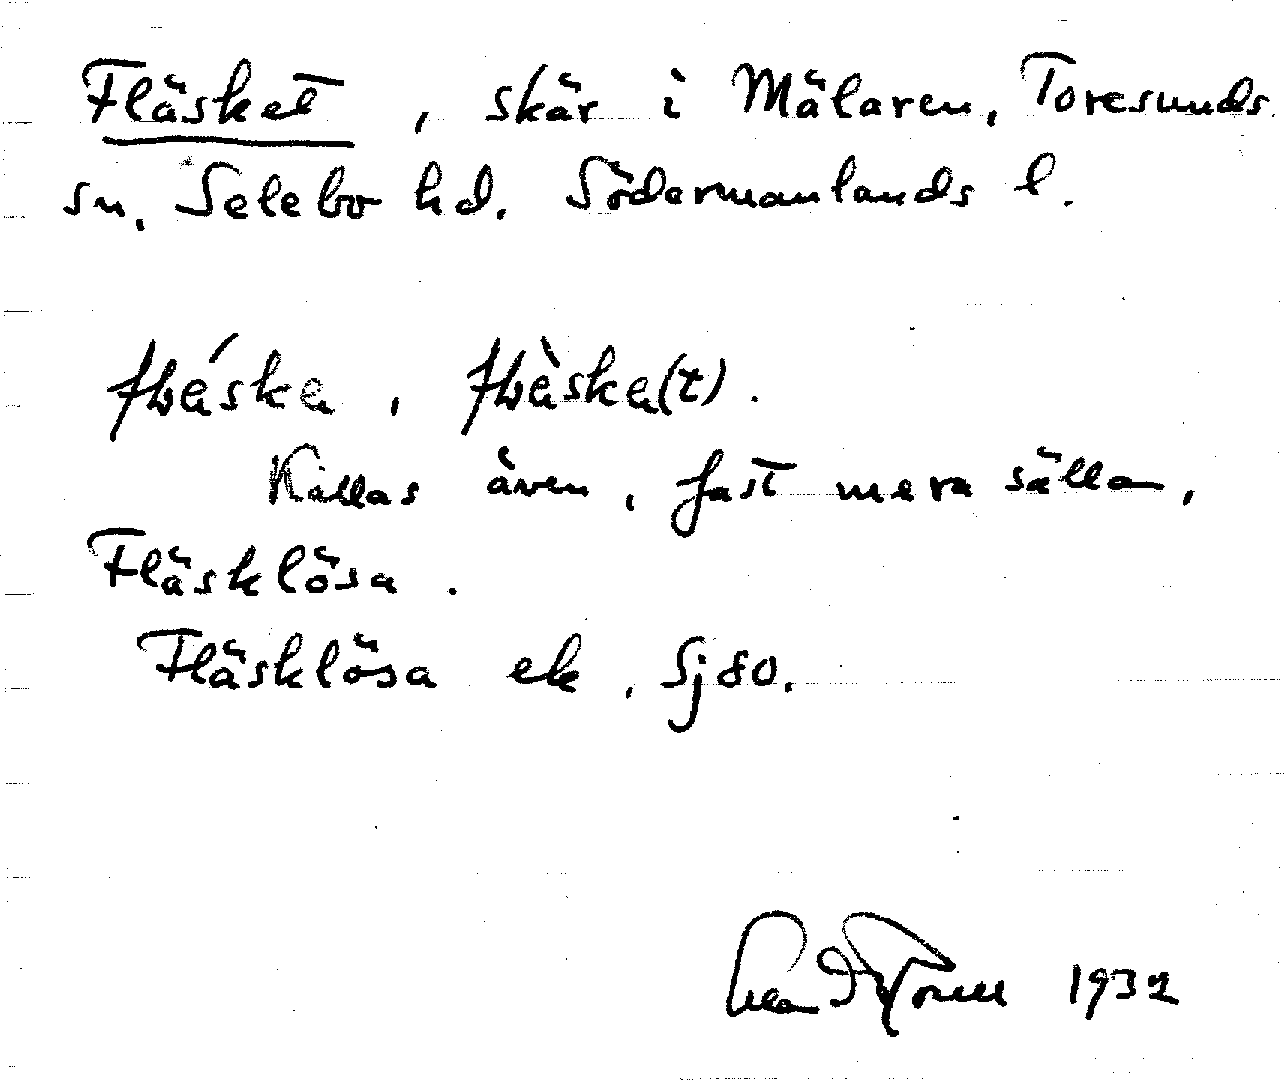 Fläsket, skär i Mälaren, Toresunds
sn. Selebo hd. Södermanlands l.
Kallas även, fast mera sällan,
Fläsklösa.
Fläsklösa ek, Sjso.
1932